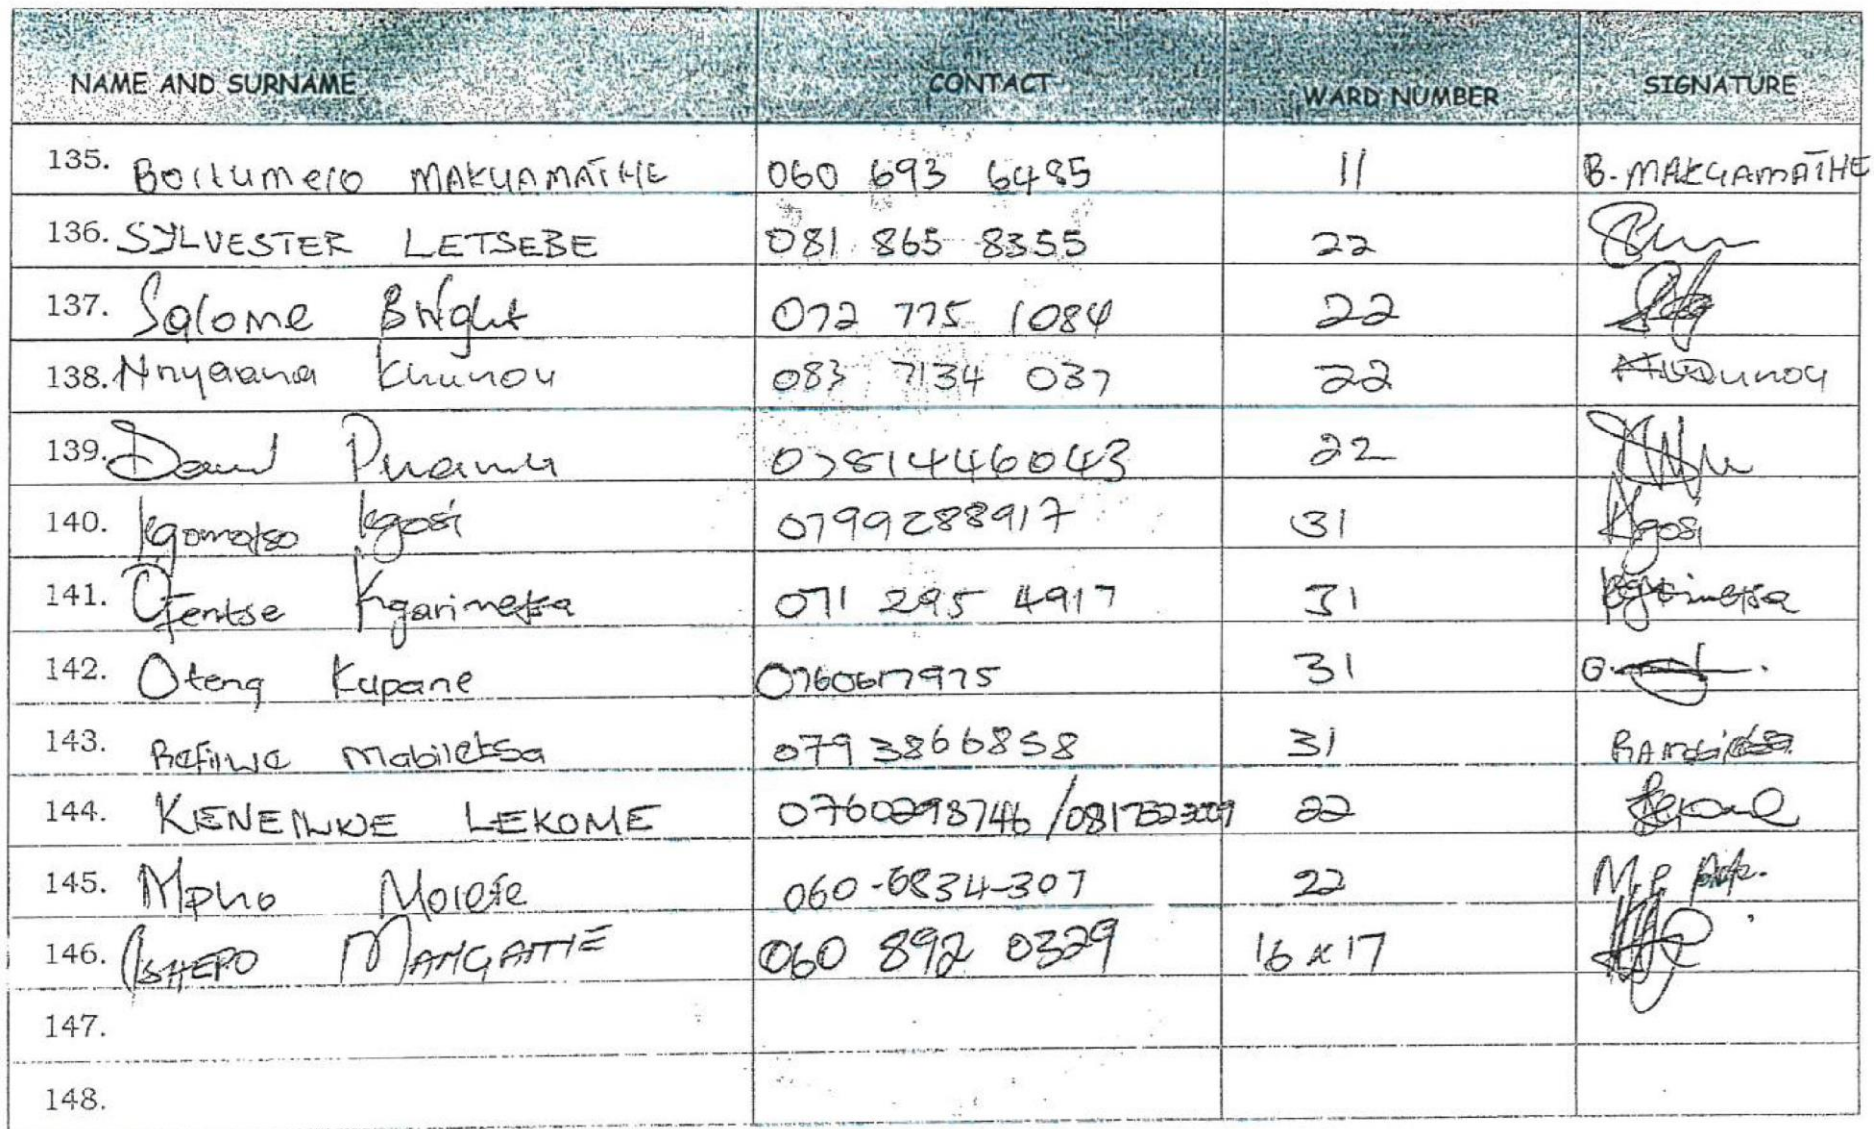 NAME AND SURNAME CONTACT WARD NUMBER SIGNATURE
135. Boitumelo MAKGAMATHE 060 693 6485 11 B. MAKGAMATHE
136. SYLVESTER LETSEBE 081 865 8355 22
137. Salome Bright 072 775 1084 22
138. Nnyaana Khunou 083 7134 037 22
139. David 22
140. Kgomotso Kgosi 0799288917 31 Kgosi
141. Ofentse Kgarimetsa 071 295 4917 31 Kgarimetsa
142. Oteng Kupane 0760617975 31
143. Refilwe Mabiletsa 079 3866858 31
144. KENEILWE LEKOME 0760298746 / 22
145. Mpho Molefe 060-6834-307 22
146. TSHEPO 060 892 0329 16 x 17
147.
148.